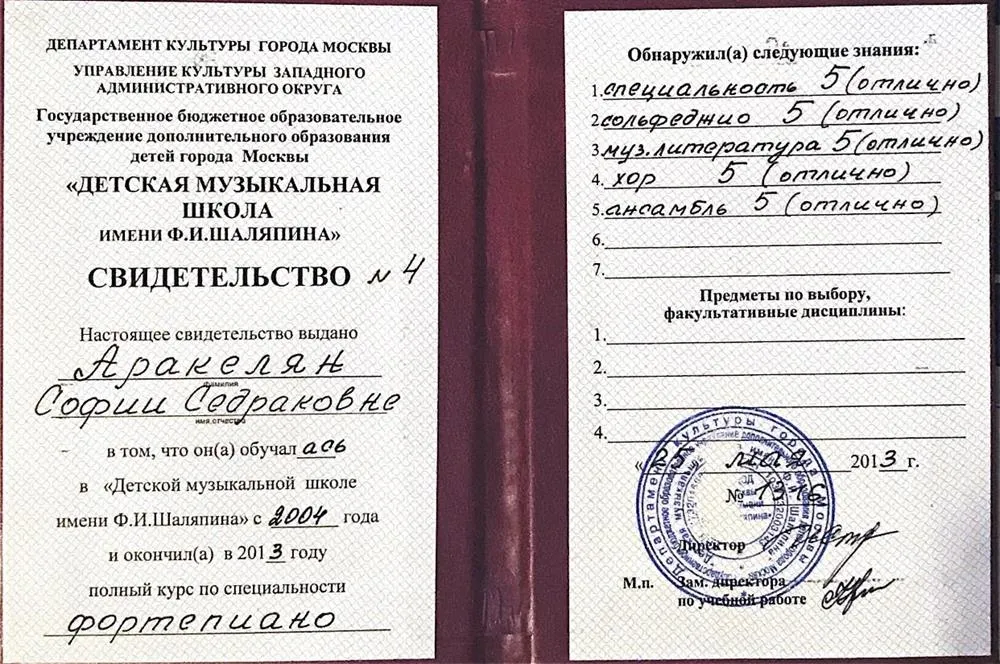 ДЕПАРТАМЕНТ КУЛЬТУРЫ ГОРОДА МОСКВЫ
УПРАВЛЕНИЕ КУЛЬТУРЫ ЗАПАДНОГО
АДМИНИСТРАТИВНОГО ОКРУГА
Государственное бюджетное образовательное
учреждение дополнительного образования
детей города Москвы
«ДЕТСКАЯ МУЗЫКАЛЬНАЯ
ШКОЛА
ИМЕНИ Ф.И.ШАЛЯПИНА»
СВИДЕТЕЛЬСТВО № 4
Настоящее свидетельство выдано
Аракелян
фамилия
Софии Седраковне
имя, отчество
в том, что он(а) обучалась
в «Детской музыкальной школе
имени Ф.И.Шаляпина» с 2004 года
и окончил(а) в 2013 году
полный курс по специальности
фортепиано
Обнаружил(а) следующие знания:
1. специальность 5 (отлично)
2. сольфеджио 5 (отлично)
3. муз.литература 5 (отлично)
4. хор 5 (отлично)
5. ансамбль 5 (отлично)
6.
7.
Предметы по выбору,
факультативные дисциплины:
1.
2.
3.
4.
мая 2013 г.
№
Директор
М.п. Зам. директора
по учебной работе
Департамент культуры города Москвы